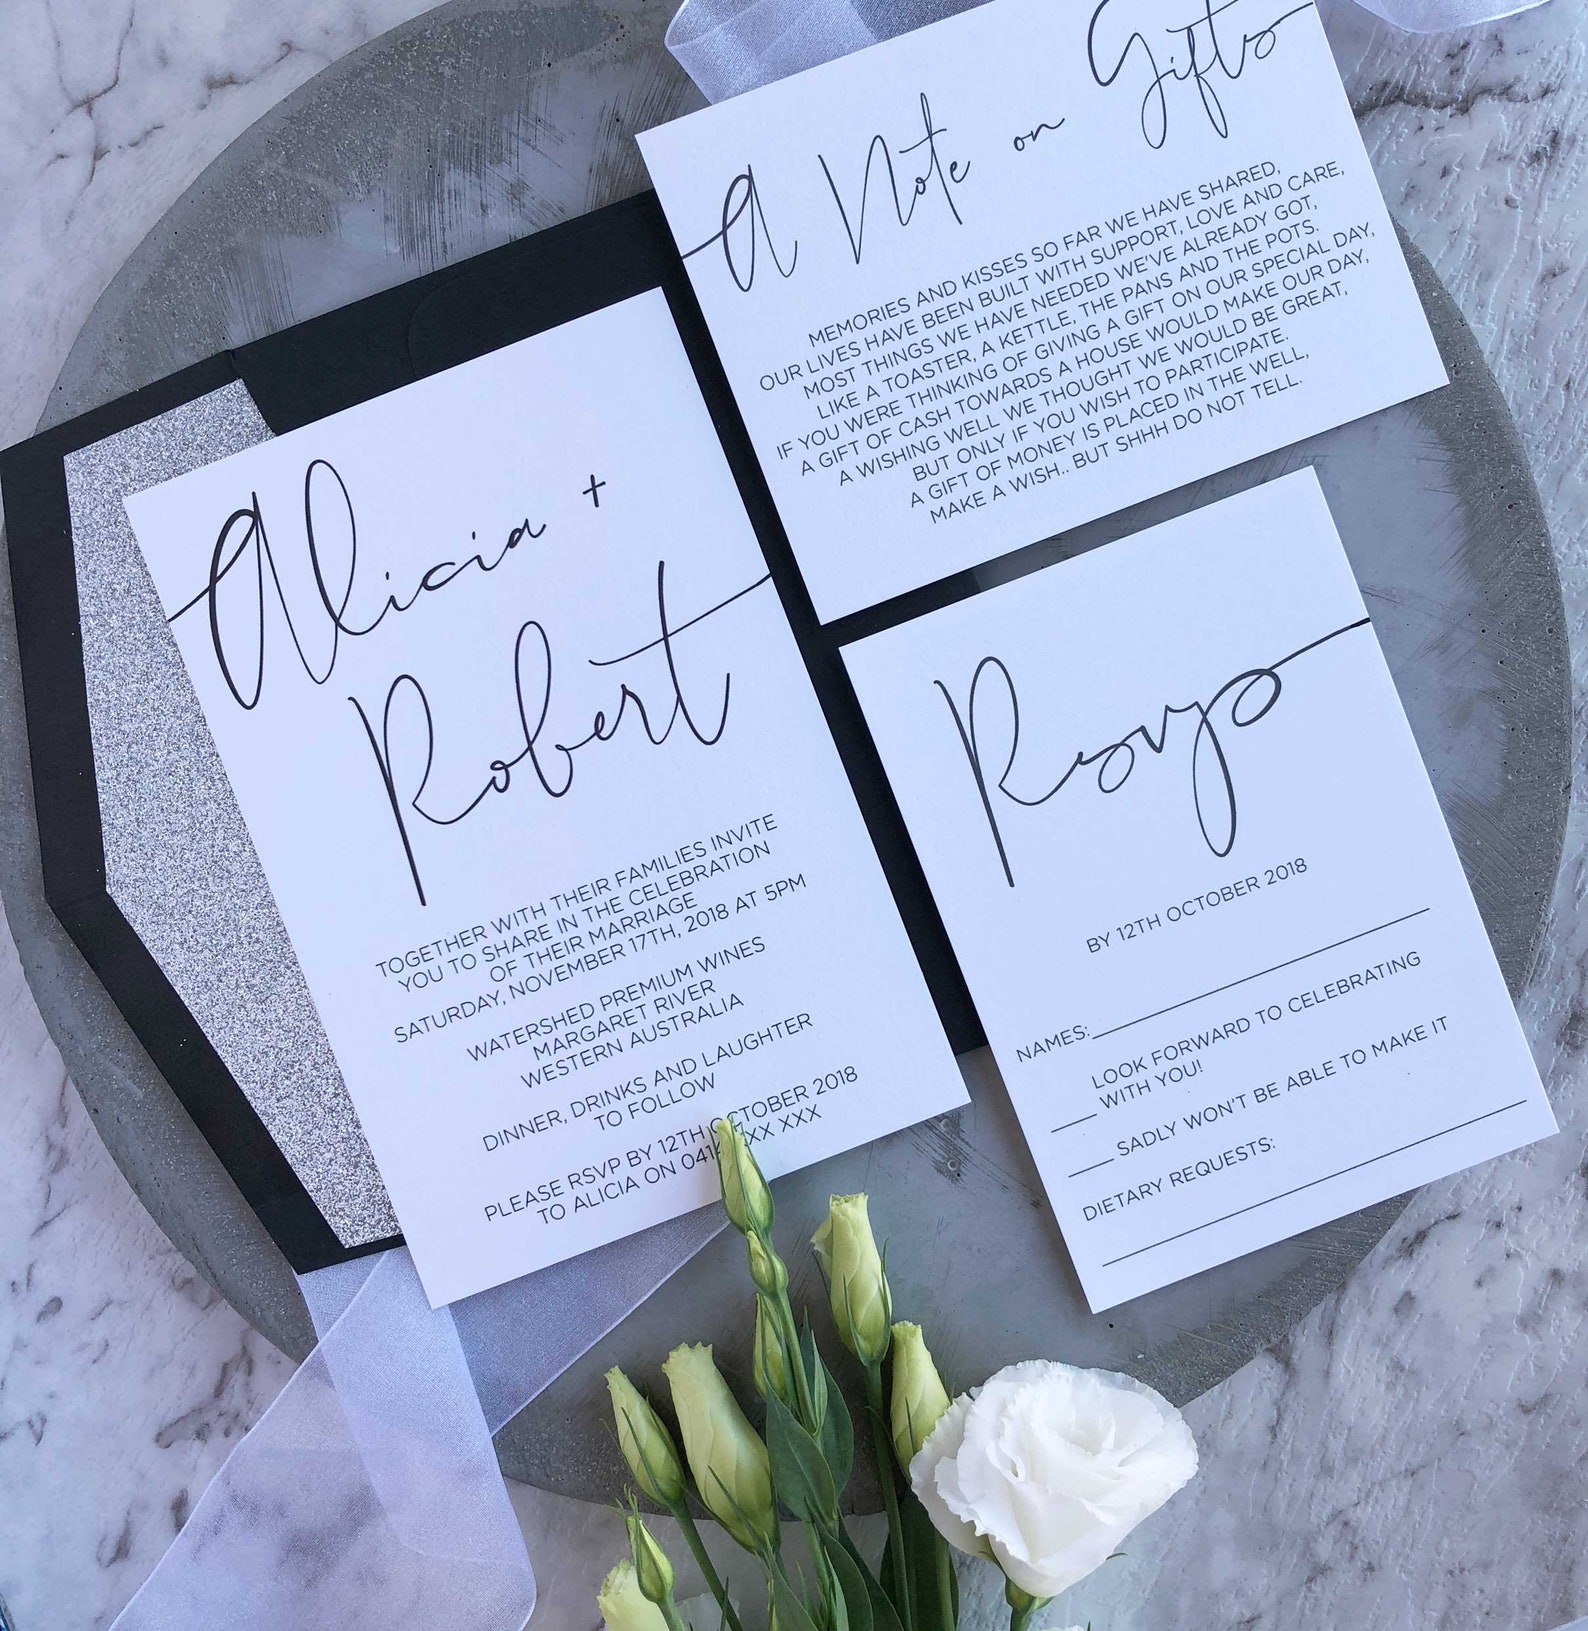 Alicia +
Robert
TOGETHER WITH THEIR FAMILIES INVITE
YOU TO SHARE IN THE CELEBRATION
OF THEIR MARRIAGE
SATURDAY, NOVEMBER 17TH, 2018 AT 5PM
WATERSHED PREMIUM WINES
MARGARET RIVER
WESTERN AUSTRALIA
DINNER, DRINKS AND LAUGHTER
TO FOLLOW
PLEASE RSVP BY 12TH OCTOBER 2018
TO ALICIA ON XXX
A Note on Gifts
MEMORIES AND KISSES SO FAR WE HAVE SHARED,
OUR LIVES HAVE BEEN BUILT WITH SUPPORT, LOVE AND CARE,
MOST THINGS WE HAVE NEEDED WE'VE ALREADY GOT,
LIKE A TOASTER, A KETTLE, THE PANS AND THE POTS.
IF YOU WERE THINKING OF GIVING A GIFT ON OUR SPECIAL DAY,
A GIFT OF CASH TOWARDS A HOUSE WOULD MAKE OUR DAY,
A WISHING WELL WE THOUGHT WE WOULD BE GREAT,
BUT ONLY IF YOU WISH TO PARTICIPATE.
A GIFT OF MONEY IS PLACED IN THE WELL,
MAKE A WISH.. BUT SHHH DO NOT TELL.
Rsvp
BY 12TH OCTOBER 2018
NAMES:
LOOK FORWARD TO CELEBRATING
WITH YOU!
SADLY WON'T BE ABLE TO MAKE IT
DIETARY REQUESTS: